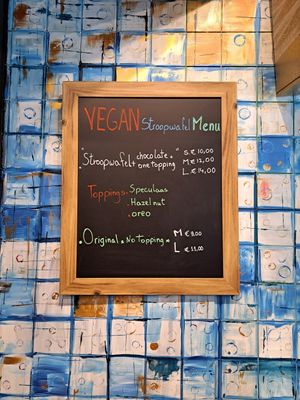 VEGAN Stroopwafel Menu
"Stroopwafel + chocolate + one topping"
S. € 10,00
M € 12,00
L. € 14,00
Toppings: Speculaas
. Hazelnut
. oreo
. Original & No Topping.
M € 9.00
L € 11,00